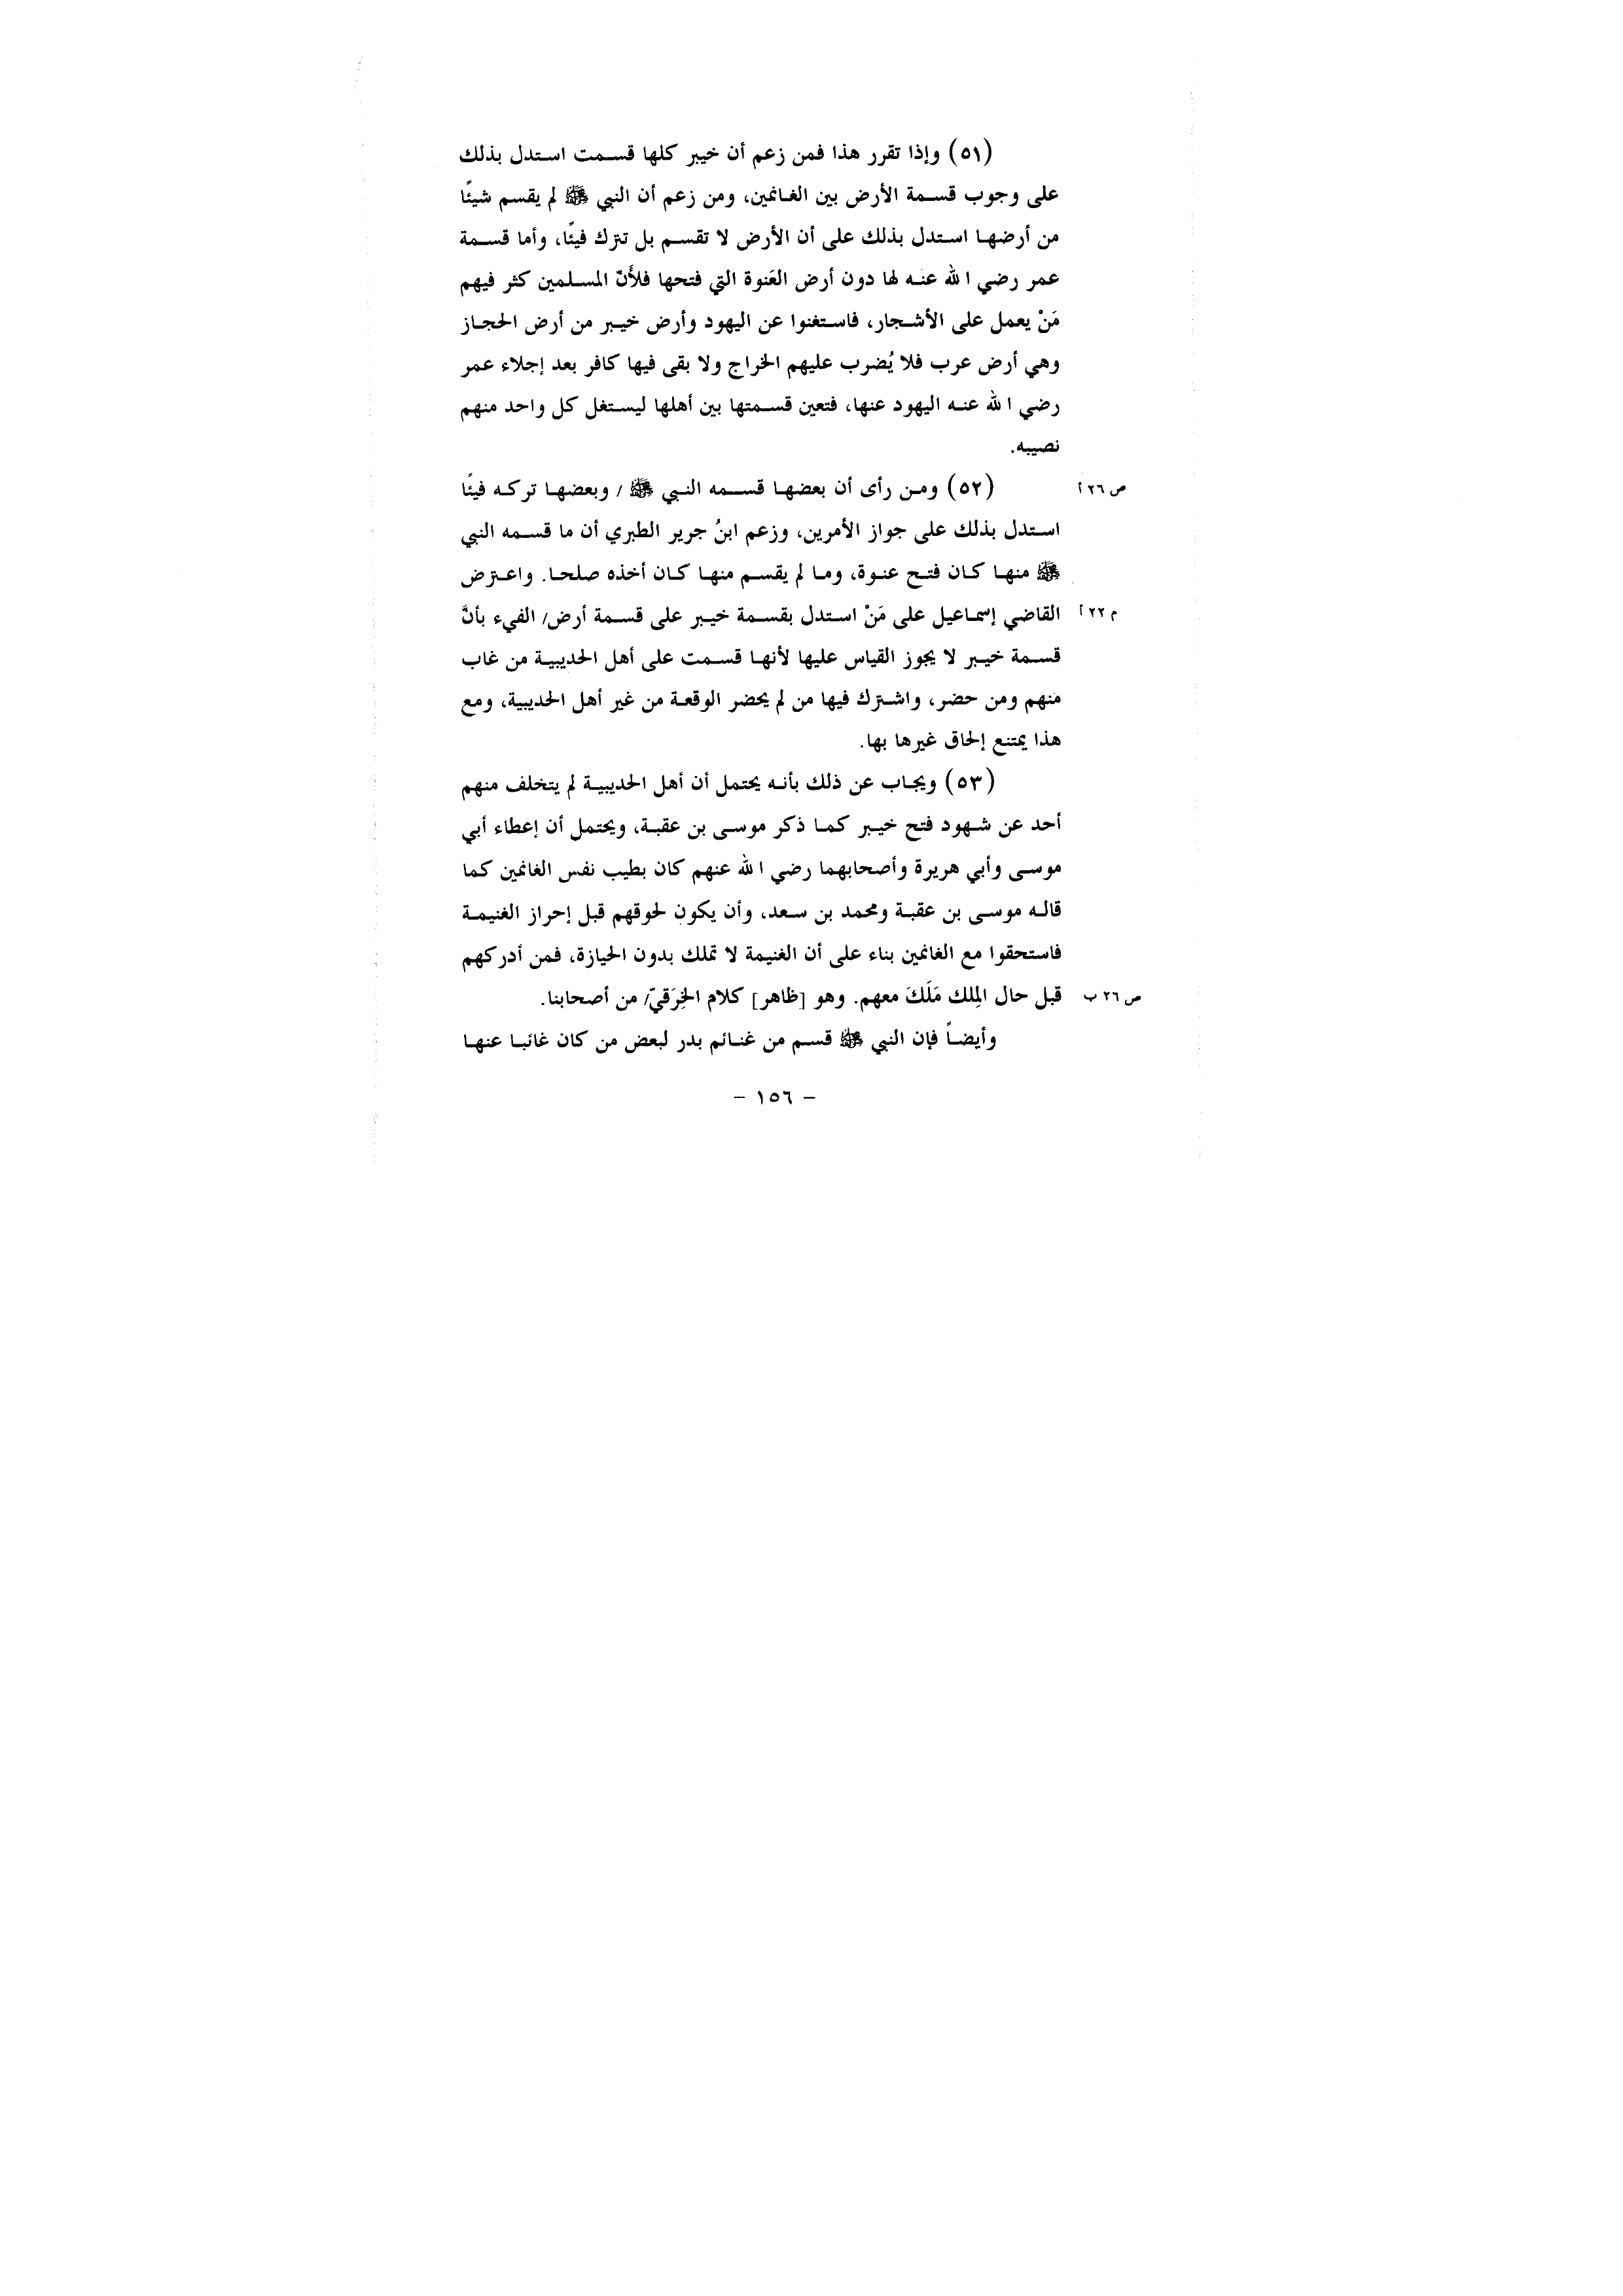 (٥١) وإذا تقرر هذا فمن زعم أن خيبر كلها قسمت استدل بذلك
على وجوب قسمة الأرض بين الغانمين، ومن زعم أن النبي ﷺ لم يقسم شيئًا
من أرضها استدل بذلك على أن الأرض لا تقسم بل تترك فيئًا، وأما قسمة
عمر رضي الله عنه لها دون أرض العَنوة التي فتحها فلأنّ المسلمين كثر فيهم
مَنْ يعمل على الأشجار، فاستغنوا عن اليهود وأرض خيبر من أرض الحجاز
وهي أرض عرب فلا يُضرب عليهم الخراج ولا بقى فيها كافر بعد إجلاء عمر
رضي الله عنه اليهود عنها، فتعين قسمتها بين أهلها ليستغل كل واحد منهم
نصيبه.
(٥٢) ومن رأى أن بعضها قسمه النبي ﷺ / وبعضها تركه فيئًا ص ٢٦ أ
استدل بذلك على جواز الأمرين، وزعم ابنُ جرير الطبري أن ما قسمه النبي
ﷺ منها كان فتح عنوة، وما لم يقسم منها كان أخذه صلحا. واعترض
القاضي إسماعيل على مَنْ استدل بقسمة خيبر على قسمة أرض/ الفيء بأنَّ م ٢٢ أ
قسمة خيبر لا يجوز القياس عليها لأنها قسمت على أهل الحديبية من غاب
منهم ومن حضر، واشترك فيها من لم يحضر الوقعة من غير أهل الحديبية، ومع
هذا يمتنع إلحاق غيرها بها.
(٥٣) ويجاب عن ذلك بأنه يحتمل أن أهل الحديبية لم يتخلف منهم
أحد عن شهود فتح خيبر كما ذكر موسى بن عقبة، ويحتمل أن إعطاء أبي
موسى وأبي هريرة وأصحابهما رضي الله عنهم كان بطيب نفس الغانمين كما
قاله موسى بن عقبة ومحمد بن سعد، وأن يكون لحوقهم قبل إحراز الغنيمة
فاستحقوا مع الغانمين بناء على أن الغنيمة لا تملك بدون الحيازة، فمن أدركهم
قبل حال المِلك مَلَكَ معهم. وهو [ظاهر] كلام الخِرَقيّ/ من أصحابنا. ص ٢٦ ب
وأيضاً فإن النبي ﷺ قسم من غنائم بدر لبعض من كان غائبا عنها
– ١٥٦ –